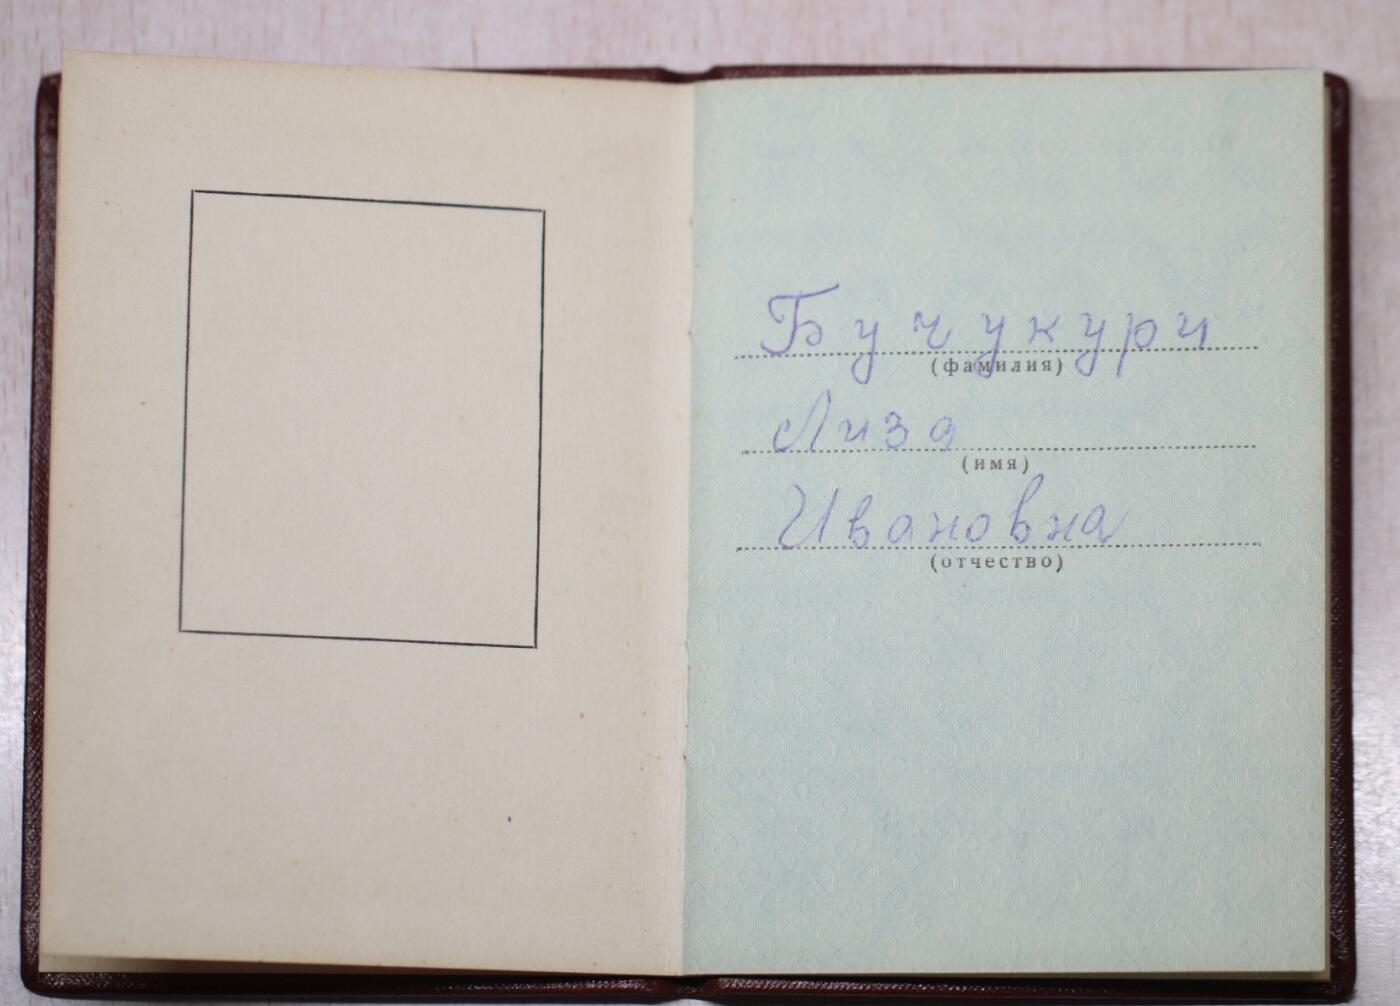 Бучукури
(фамилия)
Лиза
(имя)
Ивановна
(отчество)